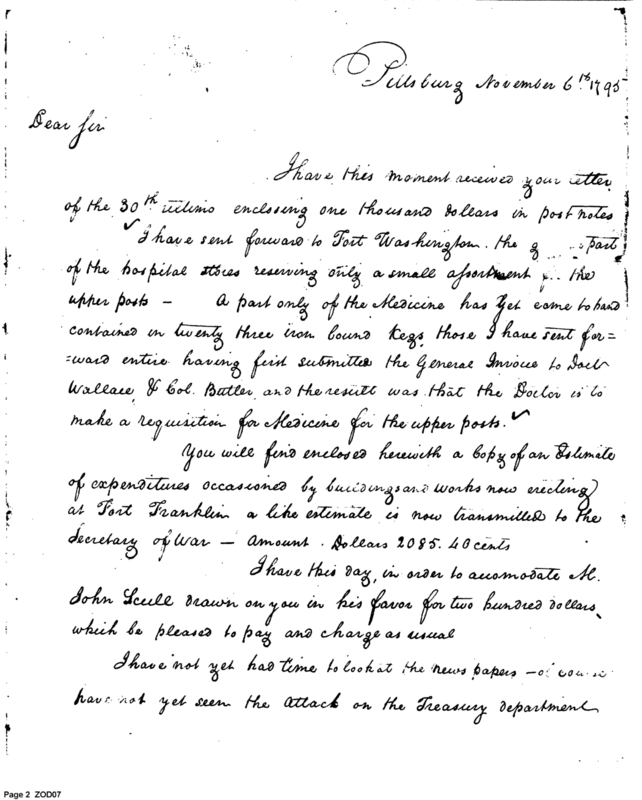 Pittsburg November 6th 1795
Dear Sir
I have this moment received your letter
of the 30th ultimo enclosing one thousand dollars in post notes
I have sent forward to Fort Washington. the part
of the hospital stores reserving only a small assortment the
upper posts — A part only of the Medicine has yet come to hand
contained in twenty three iron bound Kegs, those I have sent for=
=ward entire having first submitted the General Invoice to Doct
Wallace & Col. Butler, and the result was that the Doctor is to
make a requisition for Medicine for the upper posts.
You will find enclosed herewith a Copy of an Estimate
of expenditures occasioned by buildings and works now erecting
at Fort Franklin a like estimate is now transmitted to the
Secretary of War — amount. Dollars 2085. 40 cents
I have this day, in order to accomodate M.
John Scull drawn on you in his favor for two hundred dollars,
which be pleased to pay and charge as usual
I have not yet had time to look at the news papers — of course
have not yet seen the attack on the Treasury department
Page 2 ZOD07